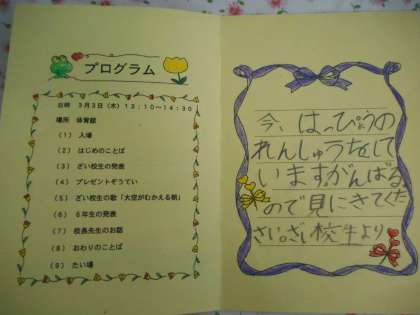 プログラム
日時 3月3日(木) 13:10~14:30
場所 体育館
(1) 入場
(2) はじめのことば
(3) ざい校生の発表
(4) プレゼントぞうてい
(5) ざい校生の歌「大空がむかえる朝」
(6) 6年生の発表
(7) 校長先生のお話
(8) おわりのことば
(9) たい場
今、はっぴょうの
れんしゅうをして
います。がんばる
ので見にきてくだ
さい。ざい校生より